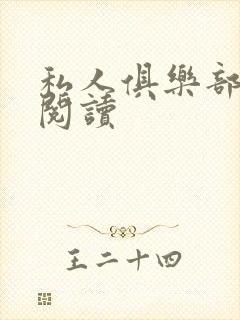 私人俱樂部
閱讀
王二十四